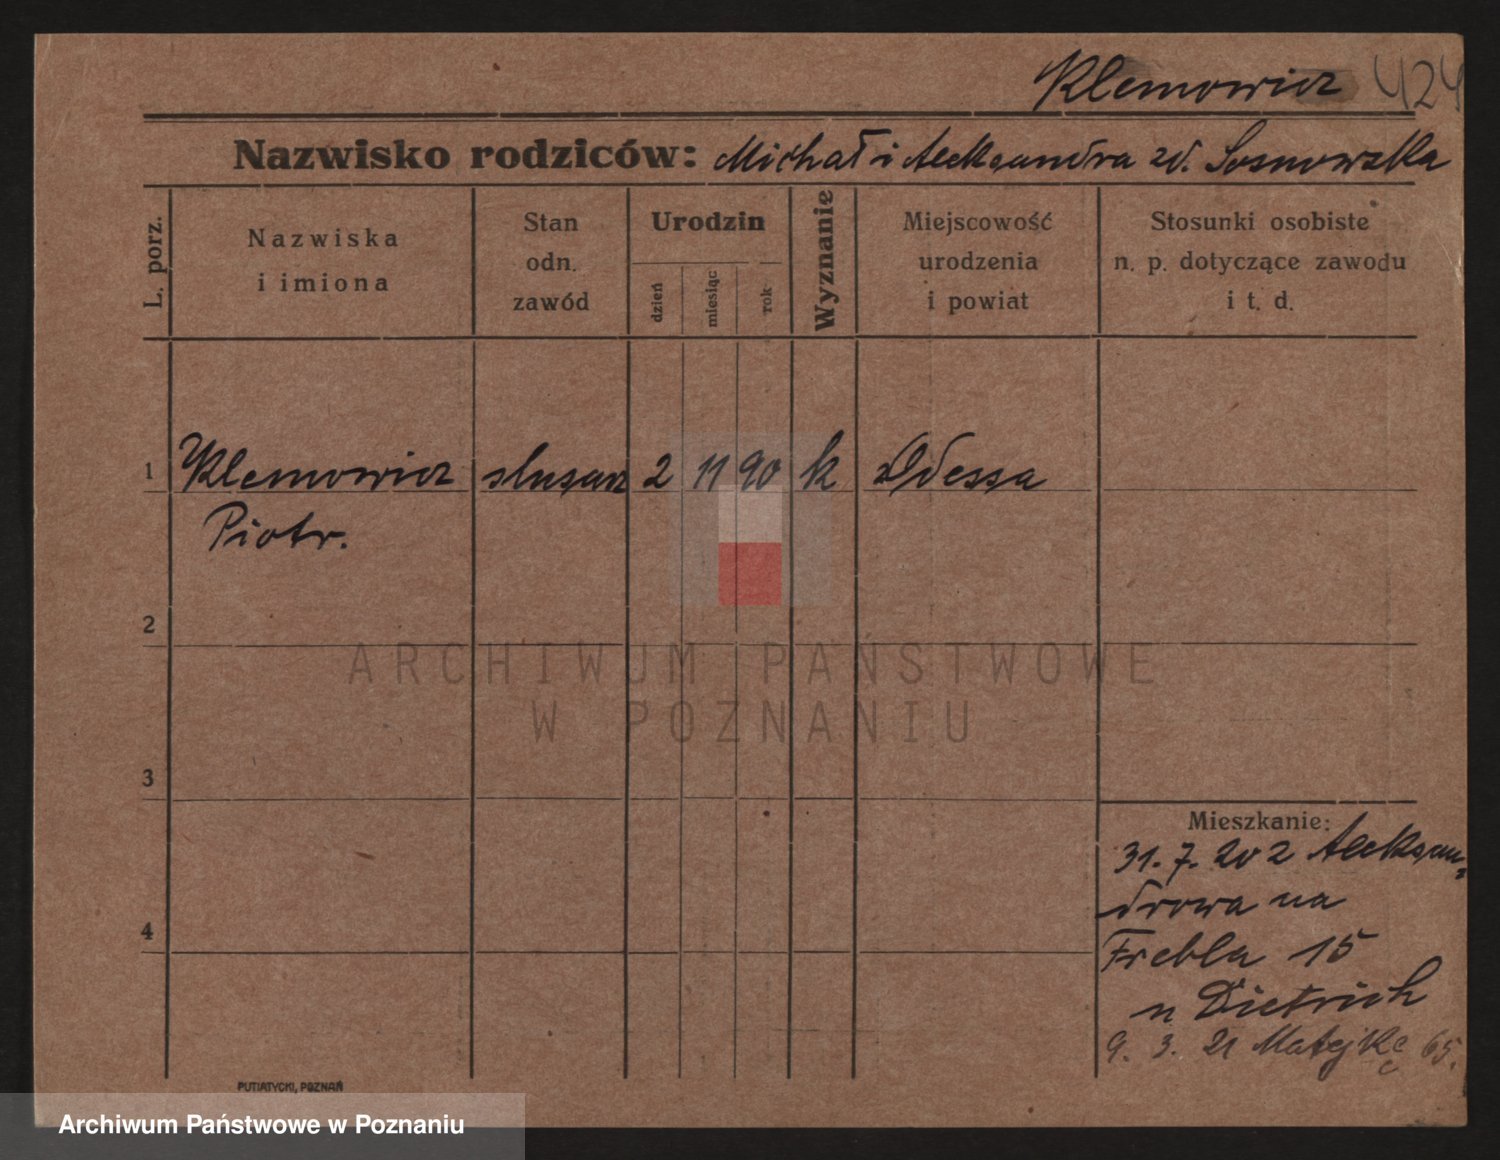 Klemowicz 424
Nazwisko rodziców: Michał i Aleksandra zd. Sosnowska
L. porz.
Nazwiska
i imiona
Stan
odn.
zawód
Urodzin
dzień
miesiąc
rok
Wyznanie
Miejscowość
urodzenia
i powiat
Stosunki osobiste
n. p. dotyczące zawodu
i t. d.
1 Klemowicz ślusarz 2 11 90 k Odessa
Piotr.
2
ARCHIWUM PAŃSTWOWE
W POZNANIU
3
Mieszkanie:
31. 7. 20 z Aleksan-
drowa na
4
Frebla 15
u Dietrich
9. 3. 21 Matejki 65.
PUTIATYCKI, POZNAŃ
Archiwum Państwowe w Poznaniu